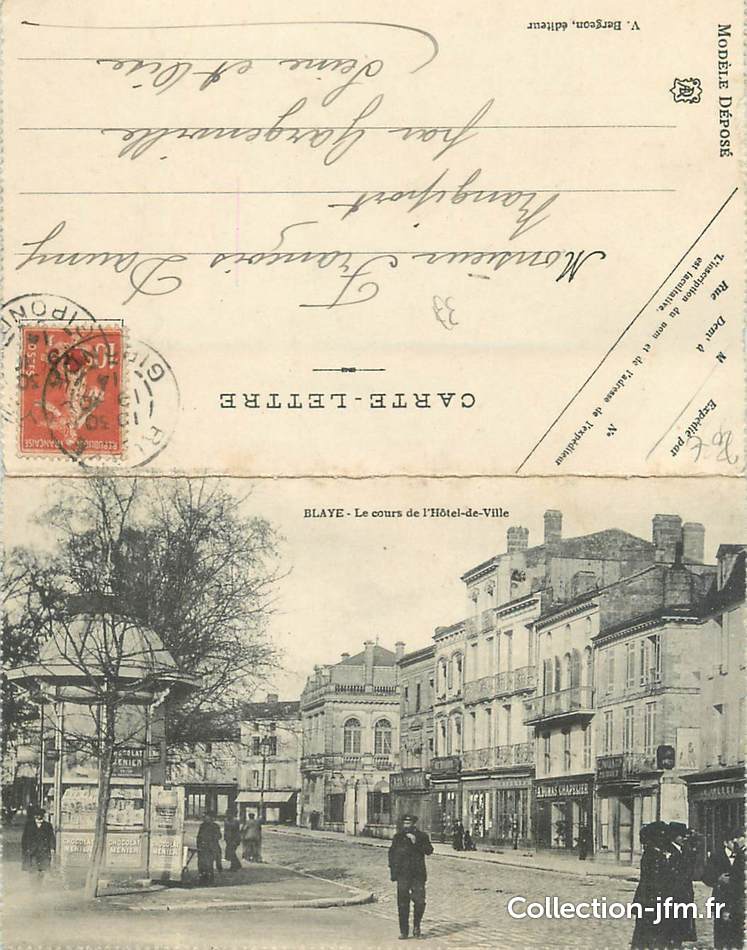 CARTE-LETTRE
Monsieur François Dauny
Rangiport
par Gargenville
Seine et Oise
37
Expédié par
M
Rue
Dem<sup>t</sup> à
N°
L'inscription du nom et de l'adresse de l'expéditeur
est facultative.
MODÈLE DÉPOSÉ
V. Bergeon, éditeur
RÉPUBLIQUE FRANÇAISE
10
POSTES
GIRONDE
BLAYE - Le cours de l'Hôtel-de-Ville
CHOCOLAT
MENIER
CHOCOLAT
MENIER
CHOCOLAT
MENIER
CHAPELIER
Collection-jfm.fr